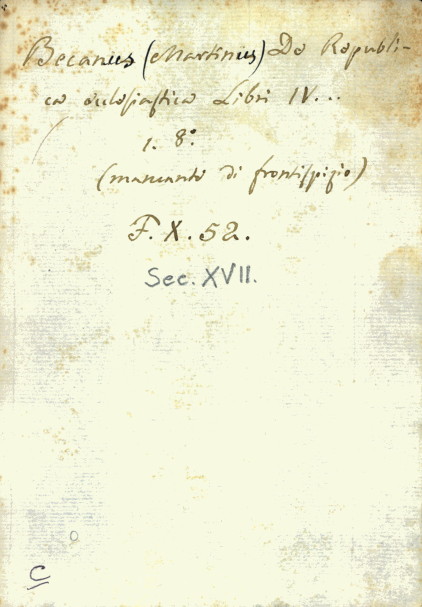 Becanus (Martinus) De Republi-
ca eclesiastica Libri IV...
1. 8°
(mancante di frontispizio)
F. X. 52.
Sec. XVII.
C